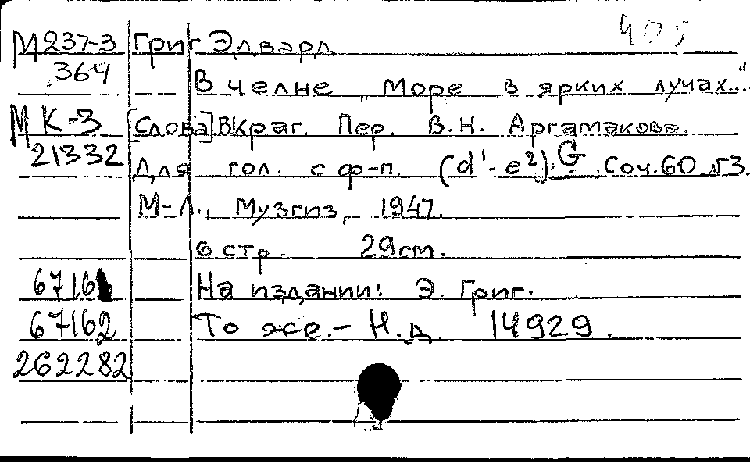 405
М237-3 Григ Эдвард
364 В челне „Море в ярких лучах..."
МК-3 [Слова] В.Краг. Пер. В.Н. Аргамакова.
21332 Для гол. с ф-п. (d'-e²). G. Соч.60 №3
М-Л., Музгиз, 1947.
6 стр. 29см.
67161 На издании: Э. Григ.
67162 То же.- Н.д. 14929.
262282